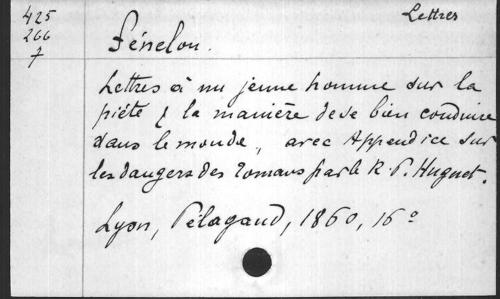 425
266
7
Lettres
Fénelon.
Lettres à un jeune homme sur la
piété & la manière de se bien conduire
dans le monde, avec Appendice sur
les dangers des romans par le R. P. Huguet.
Lyon, Pélagaud, 1860, 16°